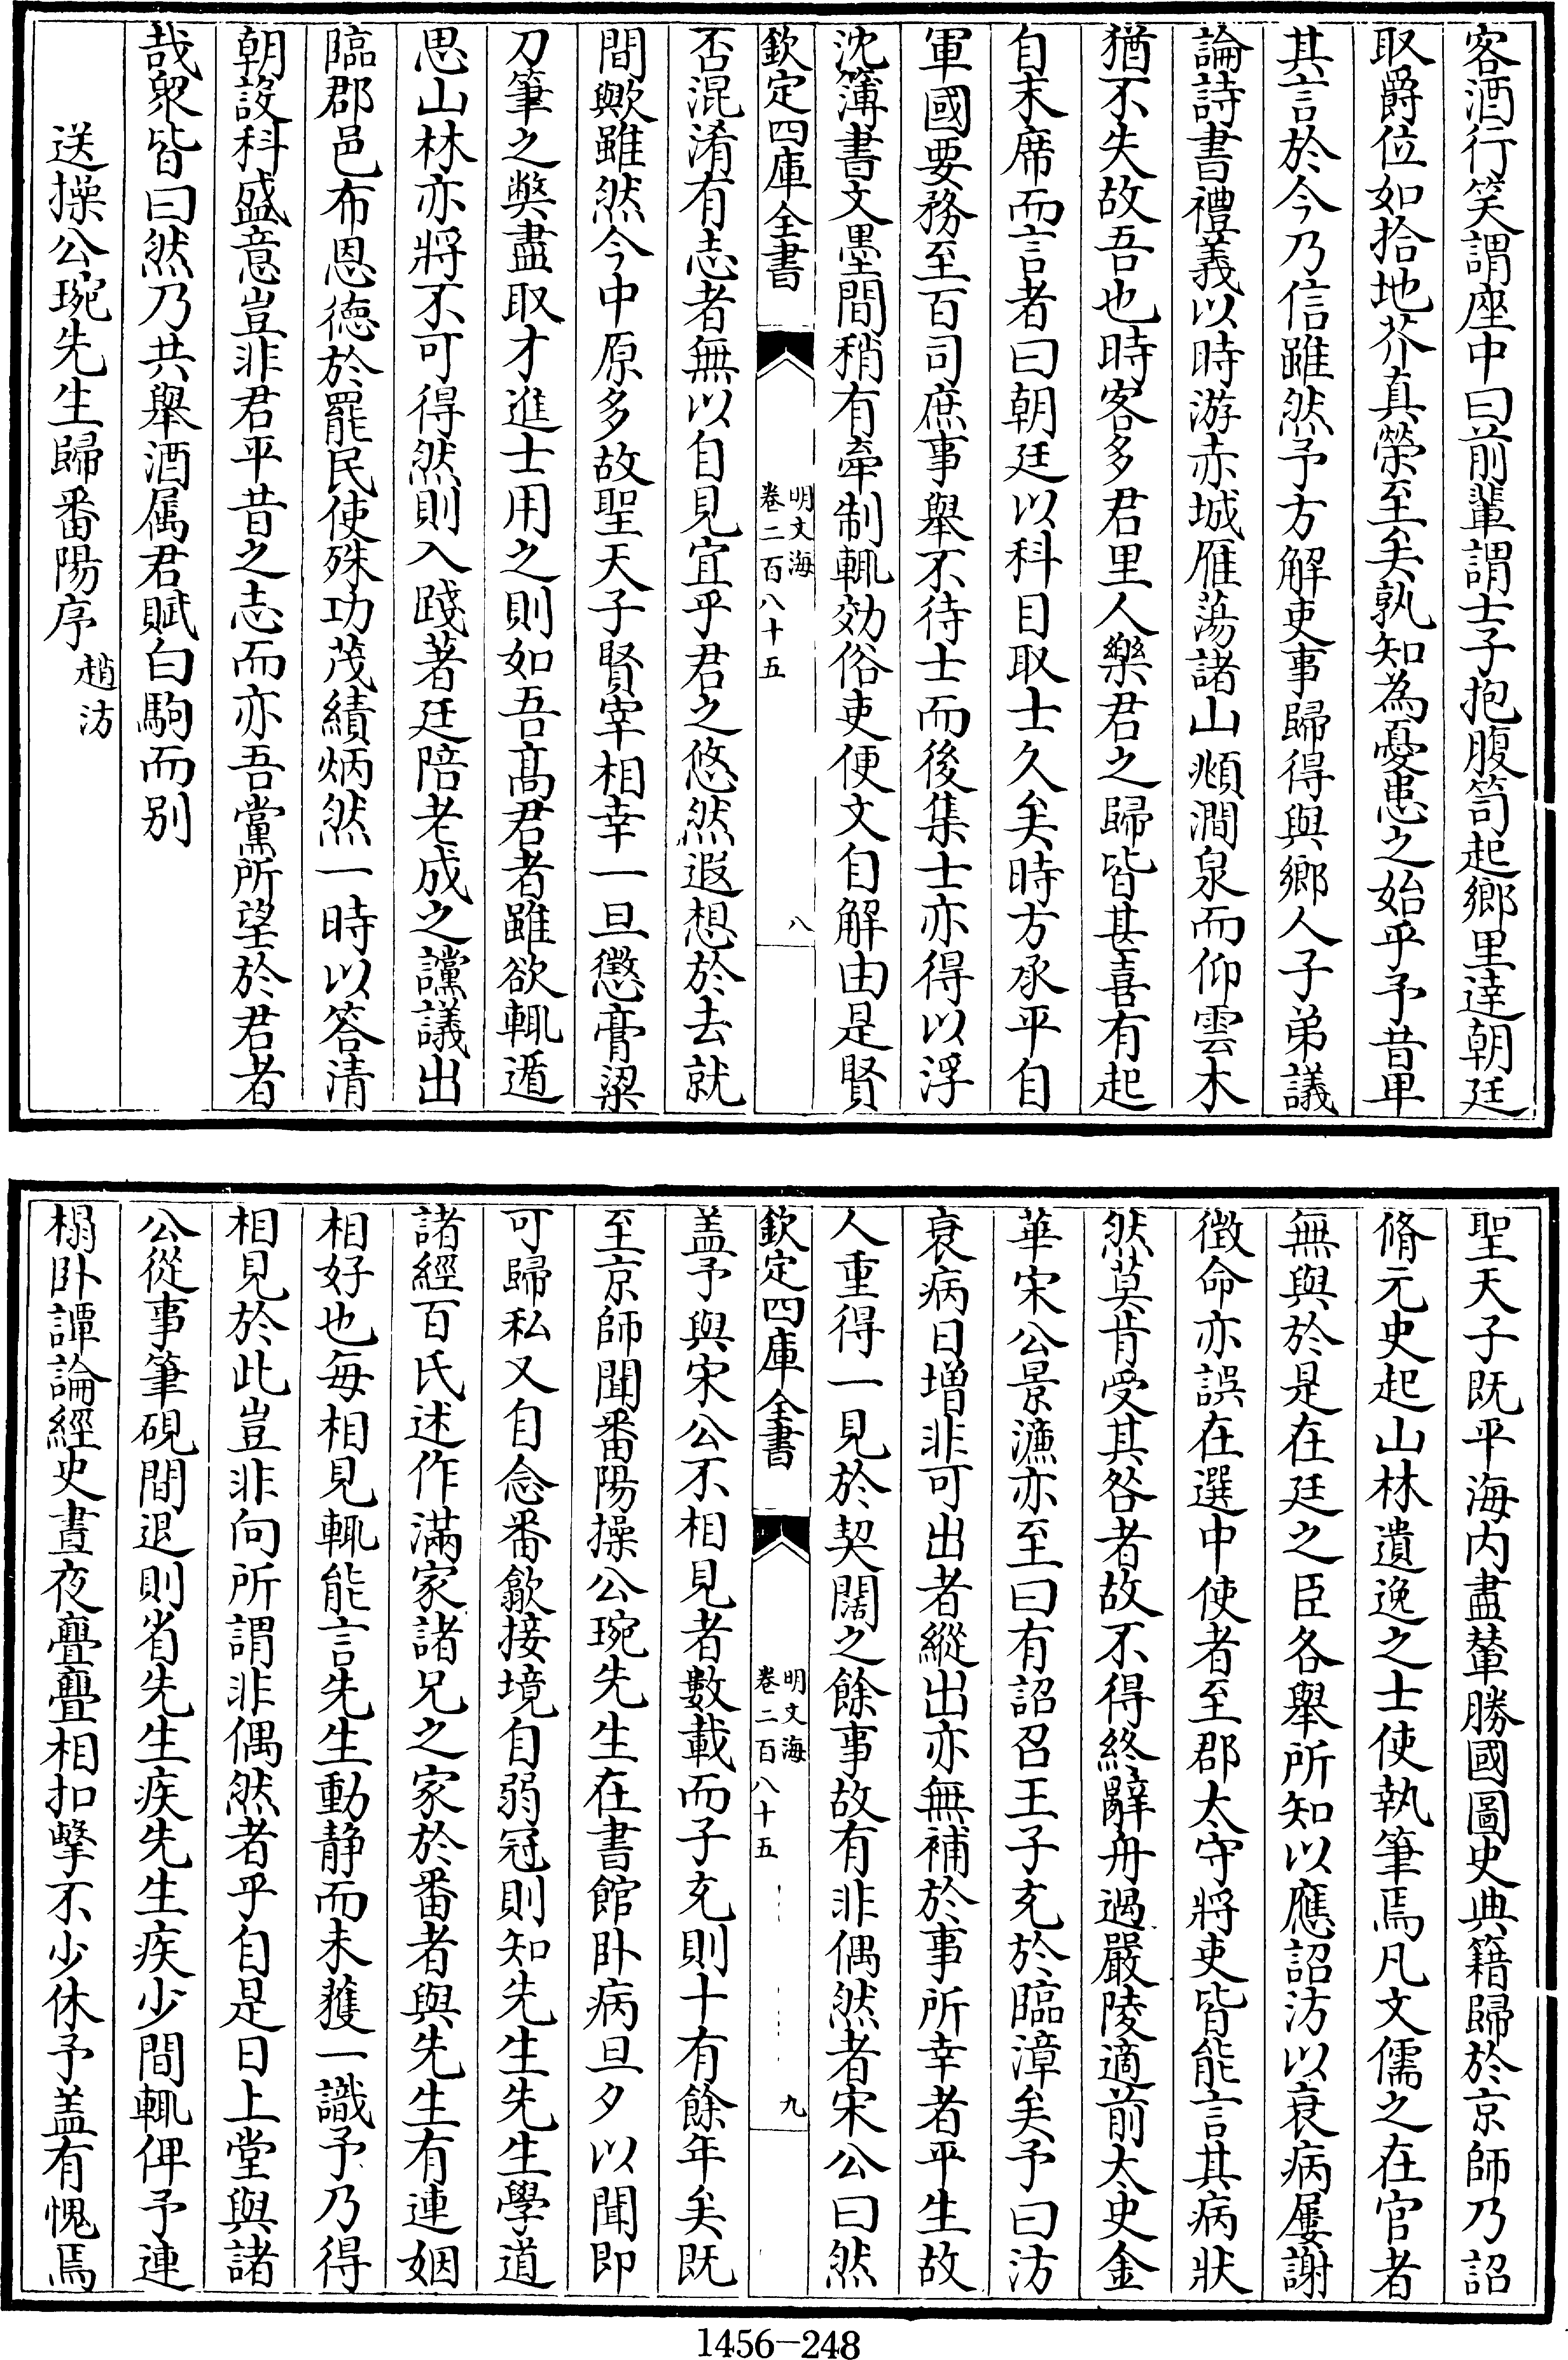 客酒行笑謂座中曰前輩謂士子抱腹笥起鄉里逹朝廷
取爵位如拾地芥真榮至矣孰知為憂患之始乎予昔卑
其言於今乃信雖然予方解吏事歸得與鄉人子弟議
論詩書禮義以時游赤城雁蕩諸山頫澗泉而仰雲木
猶不失故吾也時客多君里人樂君之歸皆甚喜有起
自末席而言者曰朝廷以科目取士久矣時方承平自
軍國要務至百司庶事舉不待士而後集士亦得以浮
沈簿書文墨間稍有牽制輒効俗吏便文自解由是賢
欽定四庫全書
明文海
卷二百八十五
八
否混淆有志者無以自見宜乎君之悠然遐想於去就
間歟雖然今中原多故聖天子賢宰相幸一旦懲膏粱
刀筆之獘盡取才進士用之則如吾髙君者雖欲輒遁
思山林亦將不可得然則入踐著廷陪老成之讜議出
臨郡邑布恩徳於罷民使殊功茂績炳然一時以答清
朝設科盛意豈非君平昔之志而亦吾黨所望於君者
哉衆皆曰然乃共舉酒属君賦白駒而别
送操公琬先生歸番陽序
趙汸
聖天子既平海内盡輦勝國圖史典籍歸於京師乃詔
脩元史起山林遺逸之士使執筆焉凡文儒之在官者
無與於是在廷之臣各舉所知以應詔汸以衰病屢謝
徴命亦誤在選中使者至郡太守將吏皆能言其病狀
然莫肯受其咎者故不得終辭舟過嚴陵適前太史金
華宋公景濂亦至曰有詔召王子充於臨漳矣予曰汸
衰病日増非可出者縱出亦無補於事所幸者平生故
人重得一見於契闊之餘事故有非偶然者宋公曰然
欽定四庫全書
明文海
卷二百八十五
九
盖予與宋公不相見者數載而子充則十有餘年矣既
至京師聞番陽操公琬先生在書館卧病旦夕以聞即
可歸私又自念番歙接境自弱冠則知先生先生學道
諸經百氏述作滿家諸兄之家於番者與先生有連姻
相好也每相見輒能言先生動静而未獲一識予乃得
相見於此豈非向所謂非偶然者乎自是日上堂與諸
公從事筆硯間退則省先生疾先生疾少間輒俾予連
榻卧譚論經史晝夜亹亹相扣擊不少休予盖有愧焉
1456-248